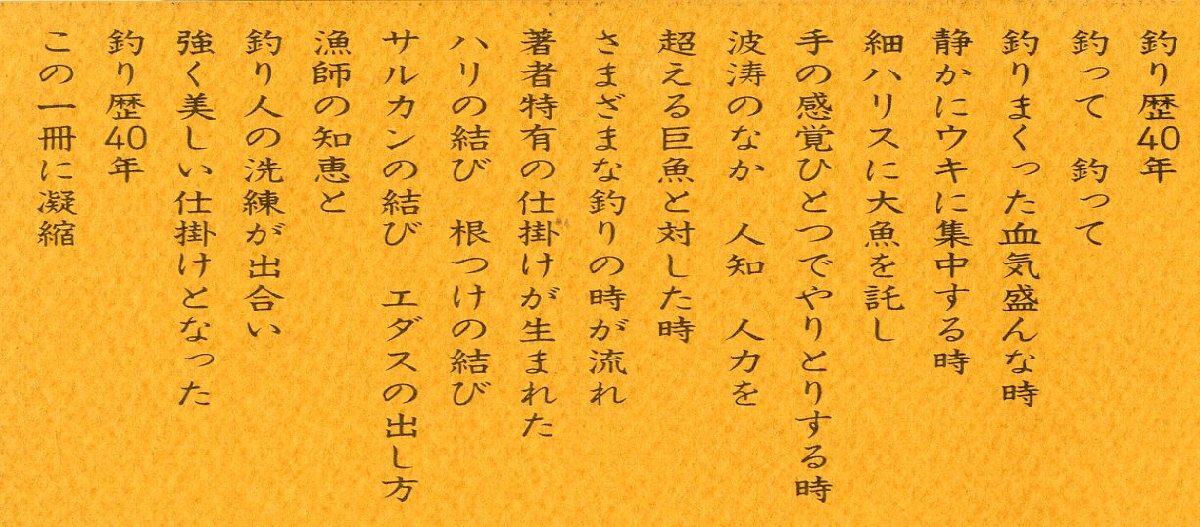 釣り歴40年
釣って　釣って
釣りまくった血気盛んな時
静かにウキに集中する時
細ハリスに大魚を託し
手の感覚ひとつでやりとりする時
波涛のなか　人知　人力を
超える巨魚と対した時
さまざまな釣りの時が流れ
著者特有の仕掛けが生まれた
ハリの結び　根つけの結び
サルカンの結び　エダスの出し方
漁師の知恵と
釣り人の洗練が出合い
強く美しい仕掛けとなった
釣り歴40年
この一冊に凝縮